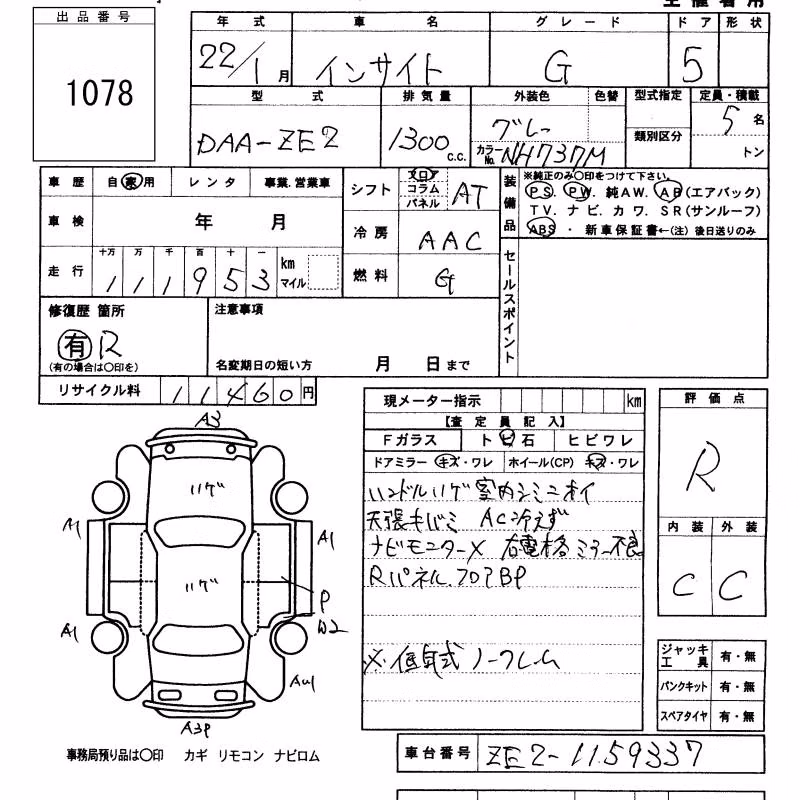 出品番号
1078
年式 車名 グレード ドア 形状
22/1月 インサイト G 5
型式 排気量 外装色 色替 型式指定 定員・積載
DAA-ZE2 1300 c.c. グレー 類別区分 5名
カラーNo. NH737M トン
車歴 自家用 レンタ 事業.営業車 シフト フロア コラム パネル AT 装備品 ※純正のみ〇印をつけて下さい。
PS. PW. 純AW. AB(エアバック)
車検 年 月 冷房 AAC TV. ナビ. カワ. SR(サンルーフ)
ABS・新車保証書←(注)後日送りのみ
走行 十万 万 千 百 十 一
111953 km マイル 燃料 G セールスポイント
修復歴 箇所 注意事項
有 R
(有の場合は〇印を) 名変期日の短い方 月 日まで
リサイクル料 11460円
現メーター指示 km
【査定員記入】
Fガラス トビ石 ヒビワレ
ドアミラー キズ・ワレ ホイール(CP) キズ・ワレ
ハンドルハゲ 室内シミニオイ
天張キバミ AC冷えず
ナビモニターX 右電格ミラー不良
Rパネル.フロアBP
※低年式 ノークレーム
評価点
R
内装 外装
C C
ジャッキ工具 有・無
パンクキット 有・無
スペアタイヤ 有・無
A3
ハゲ
A1 A1
ハゲ
P
A1 W2
AU1
A3P
事務局預り品は〇印 カギ リモコン ナビロム
車台番号 ZE2-1159337